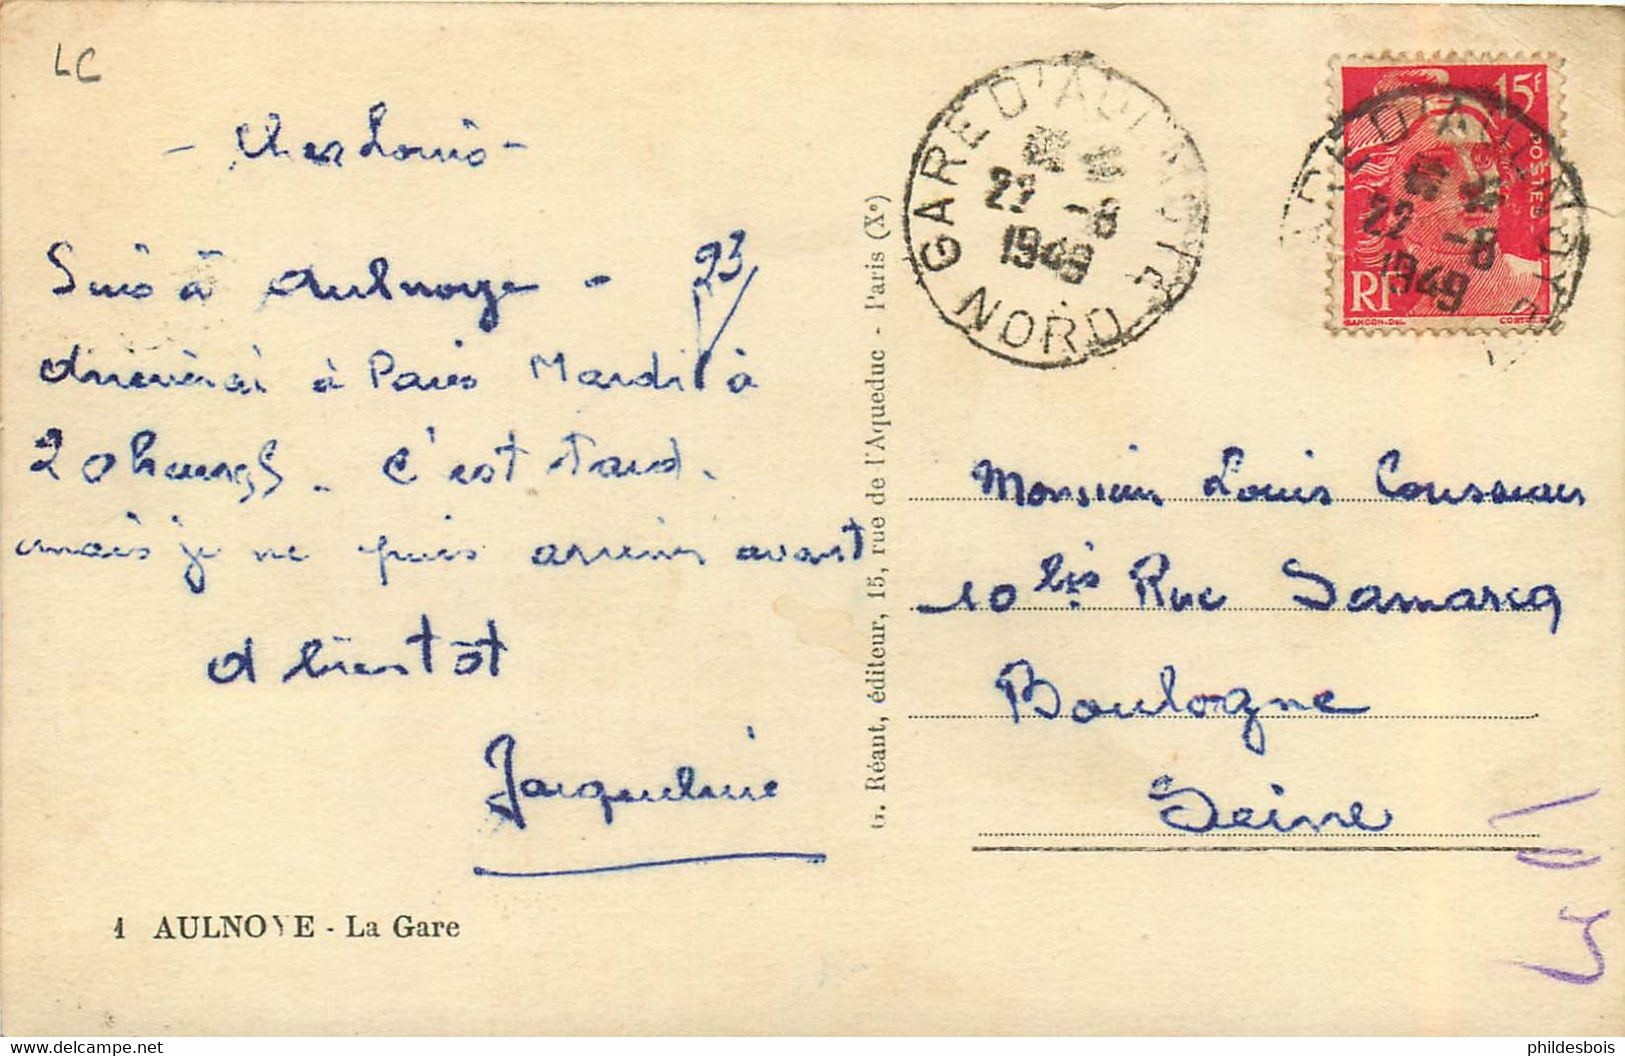 LC
- Cher Louis -
Suis à Aulnoye - 23/
arriverai à Paris Mardi à
20 heures. C'est tard.
mais je ne puis arriver avant
A bientôt
Jacqueline
1 AULNOYE - La Gare
G. Réant, éditeur, 15, rue de l'Aqueduc - Paris (Xe)
GARE D'AULNOYE
22 -8
1949
NORD
15F
POSTES
RF
GANDON-DEL
GARE D'AULNOYE
22 -8
1949
Monsieur Louis
10 bis Rue Samarcq
Boulogne
Seine
phildesbois